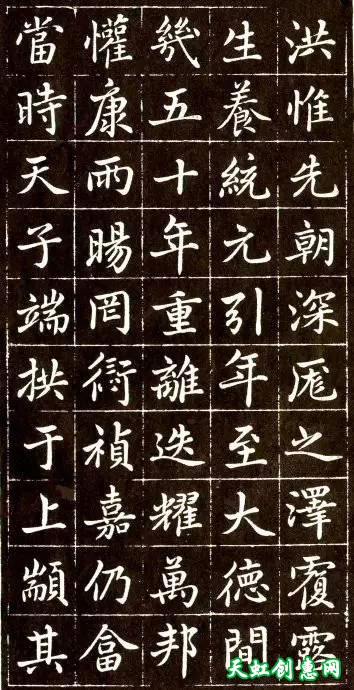 洪惟先朝深厖之澤覆露
生養統元引年至大德間
幾五十年重離迭耀萬邦
懽康雨暘罔愆禎嘉仍畣
當時天子端拱于上顓其
天虹创意网